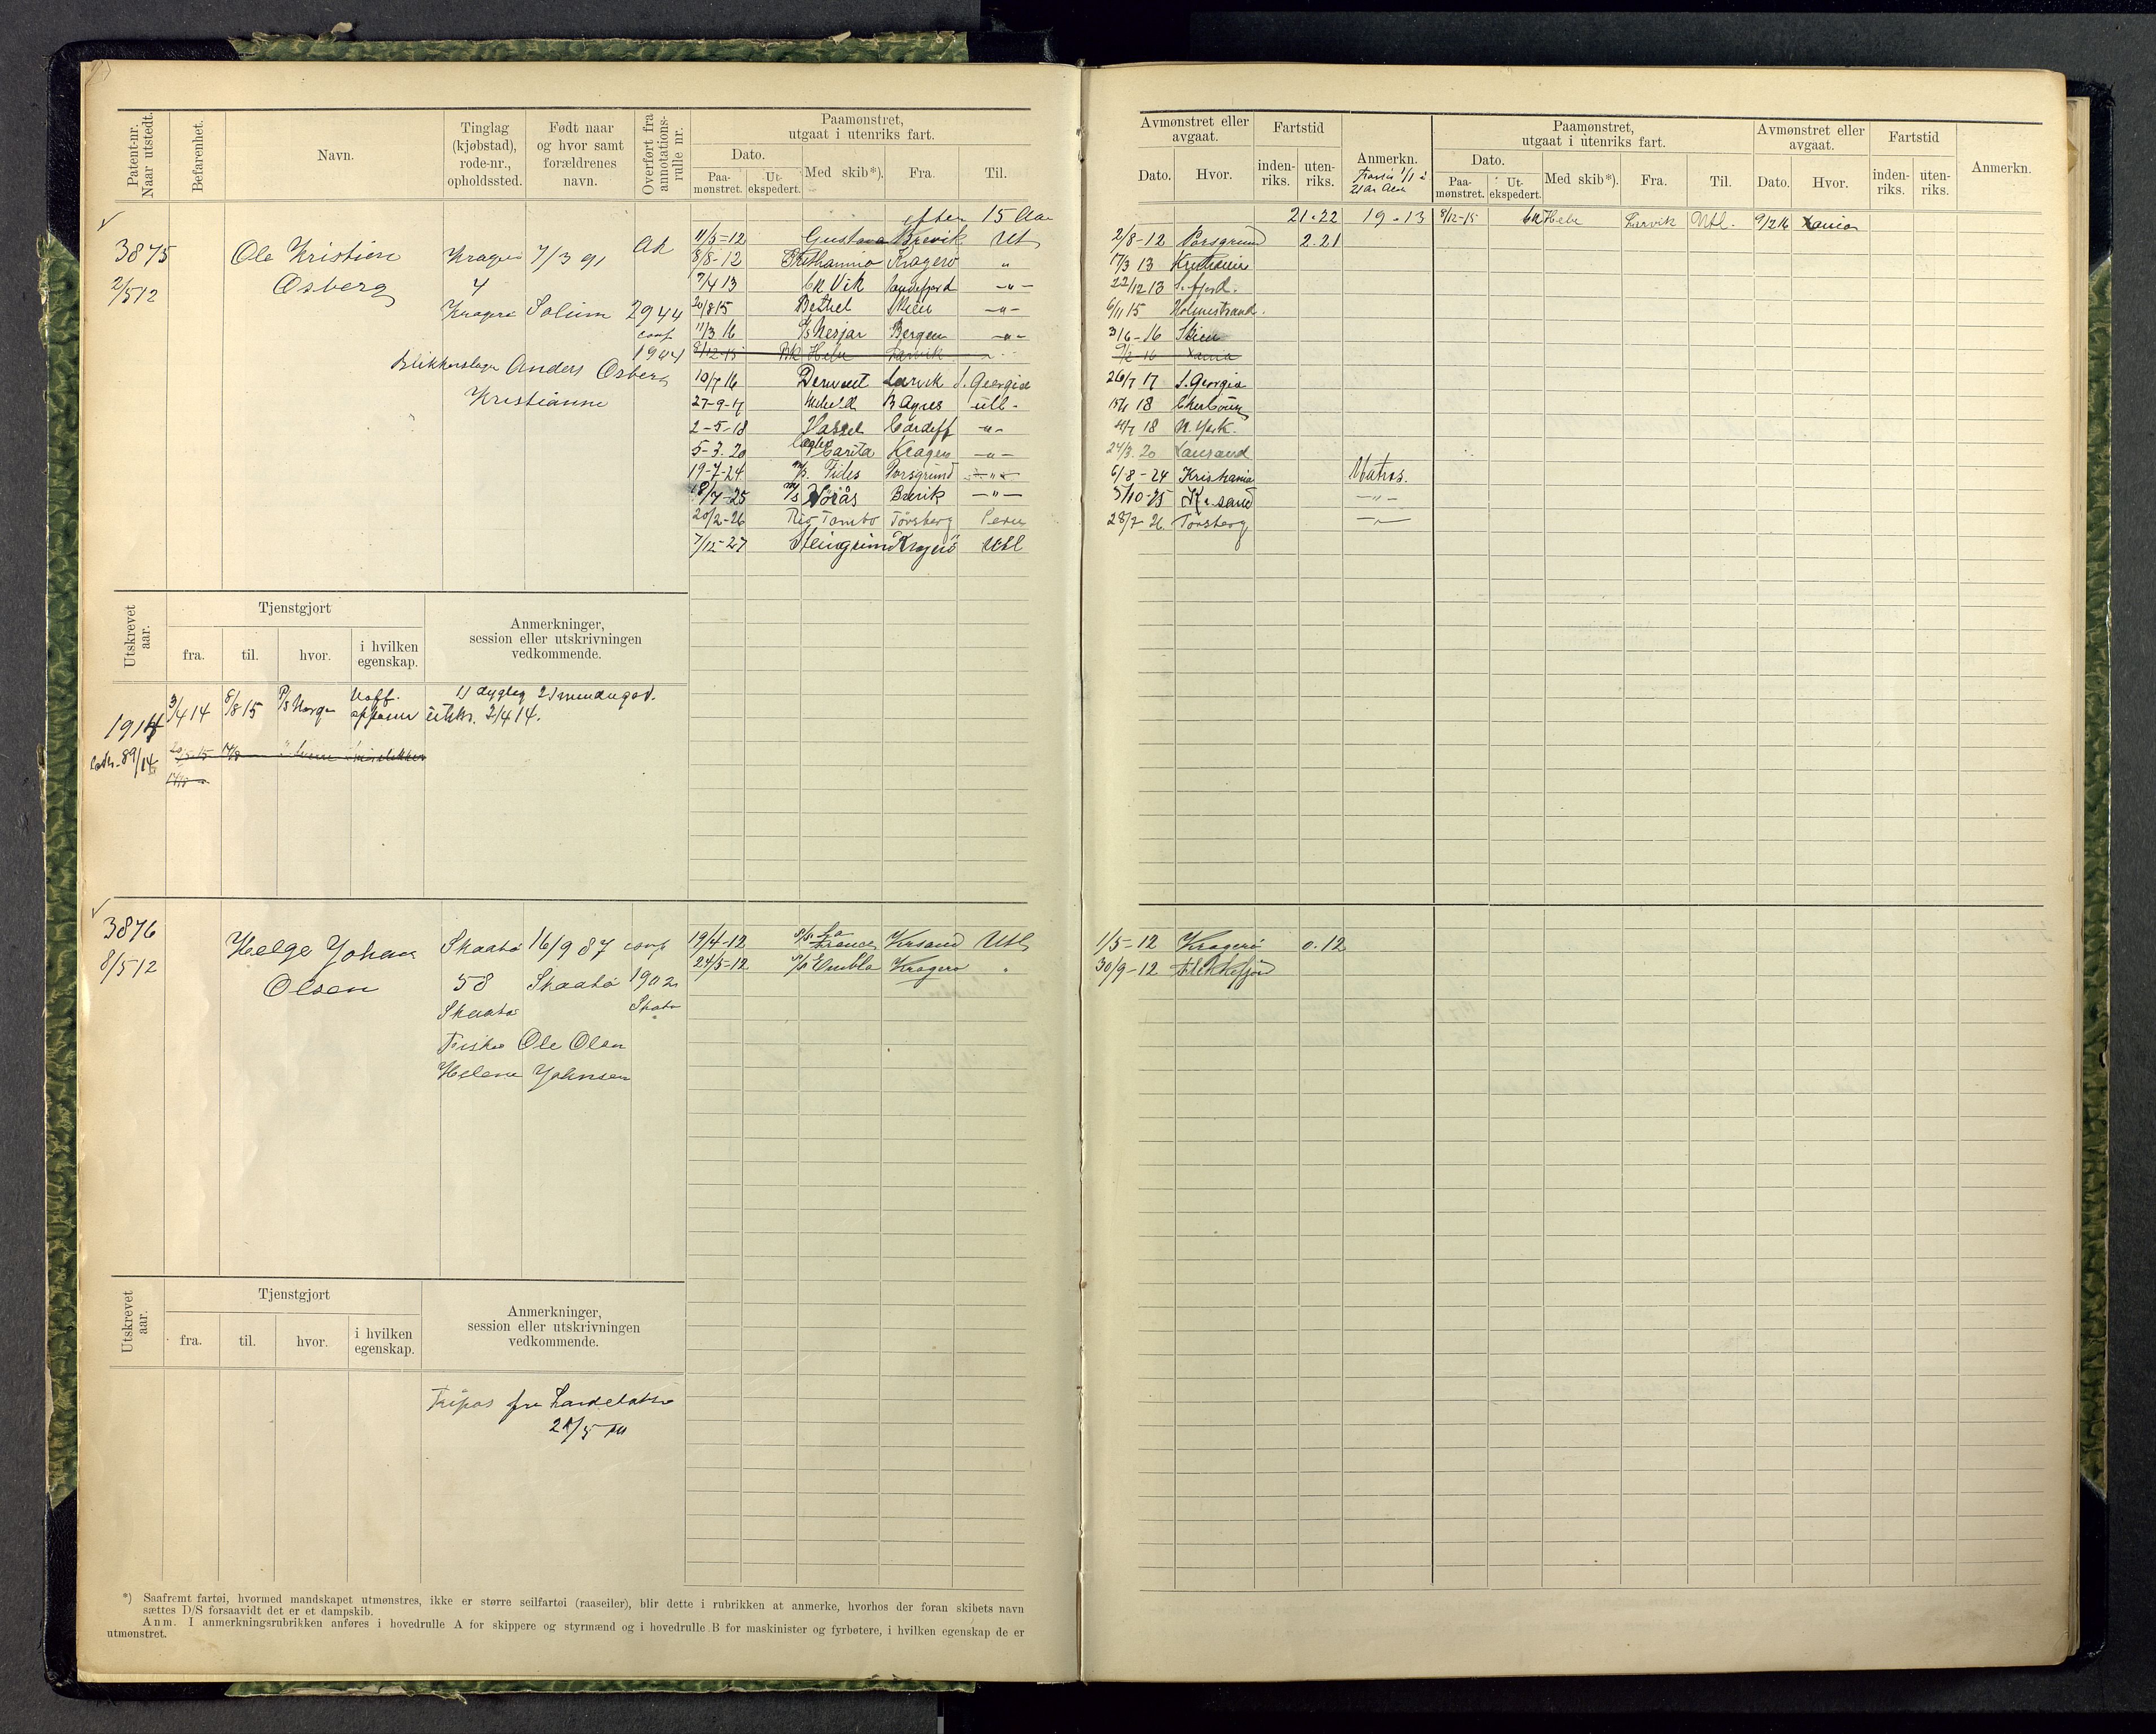 Patent-nr. Naar utstedt.
Befarenhet.
Navn.
Tinglag (kjøbstad), rode-nr., opholdssted.
Født naar og hvor samt forældrenes navn.
Overført fra annotations-rulle nr.
Paamønstret, utgaat i utenriks fart.
Dato.
Paa-mønstret.
Ut-ekspedert.
Med skib*).
Fra.
Til.
efter 15 Aar
3875
2/5 12
Ole Kristian
Osberg
Kragerø
4
Kragerø
7/3 91
Solum
AR
2944
conf
1944
Blikkenslager Anders Osberg
Kristianne
11/5-12 Gustava Brevik Utl
8/8-12 Kragerø "
7/4 13 Bk Vik Sandefjord -"-
20/8 15 Bethel Skien -"-
11/3 16 Nesjar Bergen -"-
8/12-15 Bk Hebe Larvik
10/7 16 Derwent Larvik S. Georgia
27-9-17 B Agres utl-
2-5-18 Vassel Cardiff -"-
5-3.20 Carita Kragerø -"-
19-7-24 m/s. Fides Porsgrund -"-
18/7-25 m/s Brevik -"-
20/2-26 Rio Tambo Tønsberg Peru
7/12-27 Steingrim Kragerø Utl
Utskrevet aar.
Tjenstgjort
fra.
til.
hvor.
i hvilken egenskap.
Anmerkninger, session eller utskrivningen vedkommende.
1914
89/14
3/4 14 8/8 15 P/S Norge
1) dygtig 2)
utskr. 3/4 14.
3876
8/5 12
Helge Johan
Olsen
Skaatø
58
Skaatø
16/9 87
Skaatø
conf
1902
Skaatø
Fisker Ole Olsen
Helene Johnsen
19/4-12 La France Krsand Utl
24/5-12 Embla Kragerø "
Utskrevet aar.
Tjenstgjort
fra.
til.
hvor.
i hvilken egenskap.
Anmerkninger, session eller utskrivningen vedkommende.
Fripas fra
*) Saafremt fartøi, hvormed mandskapet utmønstres, ikke er større seilfartøi (raaseiler), blir dette i rubrikken at anmerke, hvorhos der foran skibets navn
sættes D/S forsaavidt det er et dampskib.
Anm. I anmerkningsrubrikken anføres i hovedrulle A for skippere og styrmænd og i hovedrulle B for maskinister og fyrbøtere, i hvilken egenskap de er
utmønstret.
Avmønstret eller avgaat.
Dato.
Hvor.
Fartstid
inden-riks.
uten-riks.
Anmerkn.
Paamønstret, utgaat i utenriks fart.
Dato.
Paa-mønstret.
Ut-ekspedert.
Med skib*).
Fra.
Til.
Avmønstret eller avgaat.
Dato.
Hvor.
Fartstid
inden-riks.
uten-riks.
Anmerkn.
21.22 19.13 8/12-15 Bk Hebe Larvik Utl. 9/2 16 Xania
2/8-12 Porsgrund 2.21
17/3 13 Kristiania
22/12 13 S.fjord.
6/11 15 Holmestrand.
3/6-16 Skien
9/2-16 Xania
26/7 17 S. Georgia
18 Cherbourg
4/7 18 N. York.
24/3.20 Xansand
6/8-24 Kristiania Matros.
5/10-25 Kr. sand -"-
28/7-26. Tønsberg -"-
1/5-12 Kragerø 0.12
30/9-12 Flekkefjord